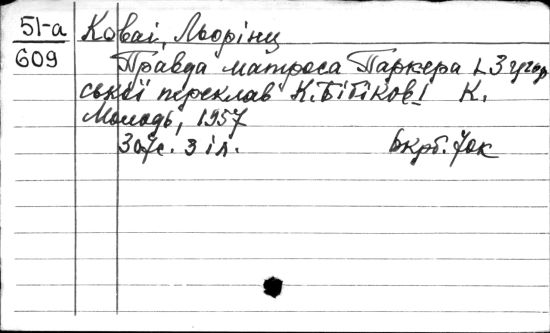 51-а
609
Коваі, Льорінц
Правда матроса Паркера [З угор
ської переклав К. Бібіков] К.
Молодь, 1957
307с. з іл.
6крб. 70к